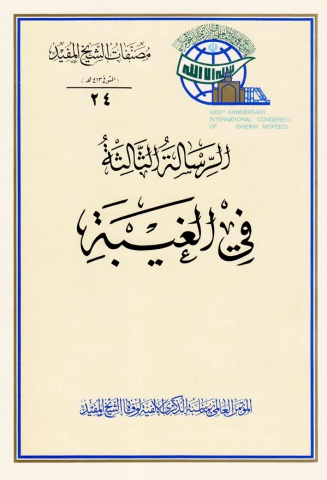 مصنفات الشيخ المفيد
(المتوفى ٤١٣ هـ)
٢٤
لا إله إلا الله
1000TH ANNIVERSARY
INTERNATIONAL CONGERESS
OF SHEIKH MOFEED
الرِّسالة الثَّالِثَةُ
فِي الغَيْبَةِ
المؤتمر العالمي بمناسبة الذكرى الألفية لوفاة الشيخ المفيد